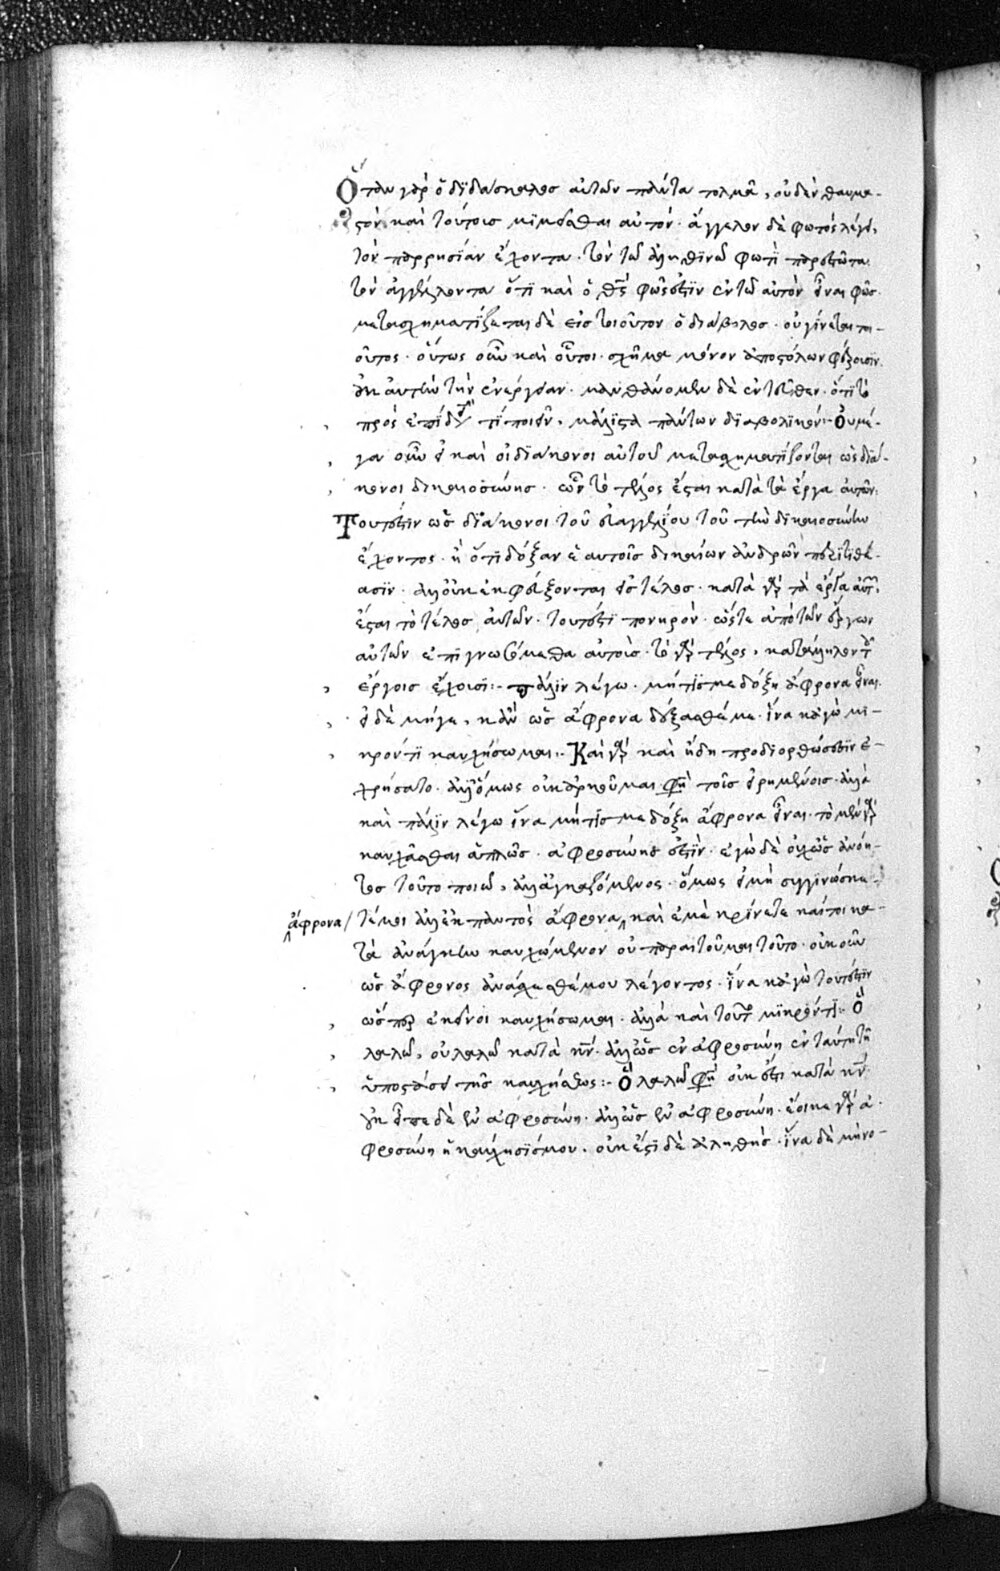 Ὅταν γὰρ ὁ διδάσκαλος αὐτῶν πάντα τολμᾶ, οὐδὲν θαυμα-
στὸν καὶ τούτοις μιμεῖσθαι αὐτόν· ἄγγελον δὲ φωτὸς λέγει,
τὸν παρρησίαν ἔχοντα· τὸν τῶ ἀληθινῶ φωτὶ παρεστῶτα·
τὸν ἀγγέλλοντα ὅτι καὶ ὁ θς φῶς ἐστὶν
μετασχηματίζεται δὲ εἰς τοιοῦτον ὁ διάβολος· οὐ γίνεται τοι-
οῦτος· οὕτως οὖν καὶ οὗτοι· σχῆμα μόνον ἀποστόλων φέρουσιν·
οὐκ αὐτὴν τὴν ἐνέργειαν· μανθάνομεν δὲ ἐντεῦθεν· ὅτι τὸ
πρὸς ἐπίδειξιν τί ποιεῖν, μάλιστα πάντων διαβολικόν:- Οὐ μέ-
γα οὖν εἰ καὶ οἱ διάκονοι αὐτοῦ μετασχηματίζονται ὡς διά-
κονοι δικαιοσύνης· ὧν τὸ τέλος ἔσται κατὰ τὰ ἔργα αὐτῶν:
Τουτέστιν ὡς διάκονοι τοῦ εὐαγγελίου τοῦ τὴν δικαιοσύνην
ἔχοντος· ἢ ὅτι δόξαν ἑαυτοῖς δικαίων ἀνδρῶν περιτιθέ-
ασιν· ἀλλ' οὐκ ἐκφεύξονται εἰς τέλος· κατὰ γὰρ τὰ ἔργα αὐτῶν,
ἔσται τὸ τέλος αὐτῶν· τουτέστι πονηρόν· ὥστε ἀπὸ τῶν ἔργων
αὐτῶν ἐπιγνωσόμεθα αὐτούς· τὸ γὰρ τέλος, κατάλληλον τοῖς
ἔργοις ἔχουσι:- πάλιν λέγω· μή τίς με δόξη ἄφρονα εἶναι·
εἰ δὲ μήγε, κἂν ὡς ἄφρονα δέξασθέ με· ἵνα κἀγὼ μι-
κρόν τι καυχήσωμαι:- Καὶ γὰρ καὶ ἤδη προδιορθώσει ἐ-
χρήσατο· ἀλλ' ὅμως οὐκ ἀρκοῦμαι φησὶ τοῖς εἰρημένοις· ἀλλὰ
καὶ πάλιν λέγω ἵνα μή τίς με δόξη ἄφρονα εἶναι· τὸ μὲν γὰρ
καυχᾶσθαι ἁπλῶς· ἀφροσύνης ἐστὶν· ἐγὼ δὲ οὐχ ὡς ἀνόη-
τος τοῦτο ποιῶ, ἀλλ' ἀναγκαζόμενος· ὅμως εἰ μὴ συγγινώσκε-
ἄφρονα / τέ μοι ἀλλ' ἐκ παντὸς ἄφρονα καὶ ἐμὲ κρίνετε καίτοι κα-
τὰ ἀνάγκην καυχώμενον οὐ παραιτοῦμαι τοῦτο· οὐκοῦν
ὡς ἄφρονος ἀνάσχεσθέ μου λέγοντος· ἵνα κἀγὼ τουτέστιν
ὥσπερ ἐκεῖνοι καυχήσωμαι· ἀλλὰ καὶ τοῦτο μικρόν τι:- Ὃ
λαλῶ, οὐ λαλῶ κατὰ κν· ἀλλ' ὡς ἐν ἀφροσύνη ἐν ταύτη τῆ
ὑποστάσει τῆς καυχήσεως:- Ὃ λαλῶ φησὶ οὐκ ἔστι κατὰ κν·
ἀφροσύνη· ἀλλ' ὡς ἐν ἀφροσύνη· ἔοικε γὰρ ἀ-
φροσύνη ἡ καύχησίς μου· οὐκ ἔστι δὲ ἀληθῶς· ἵνα δὲ μὴ νο-